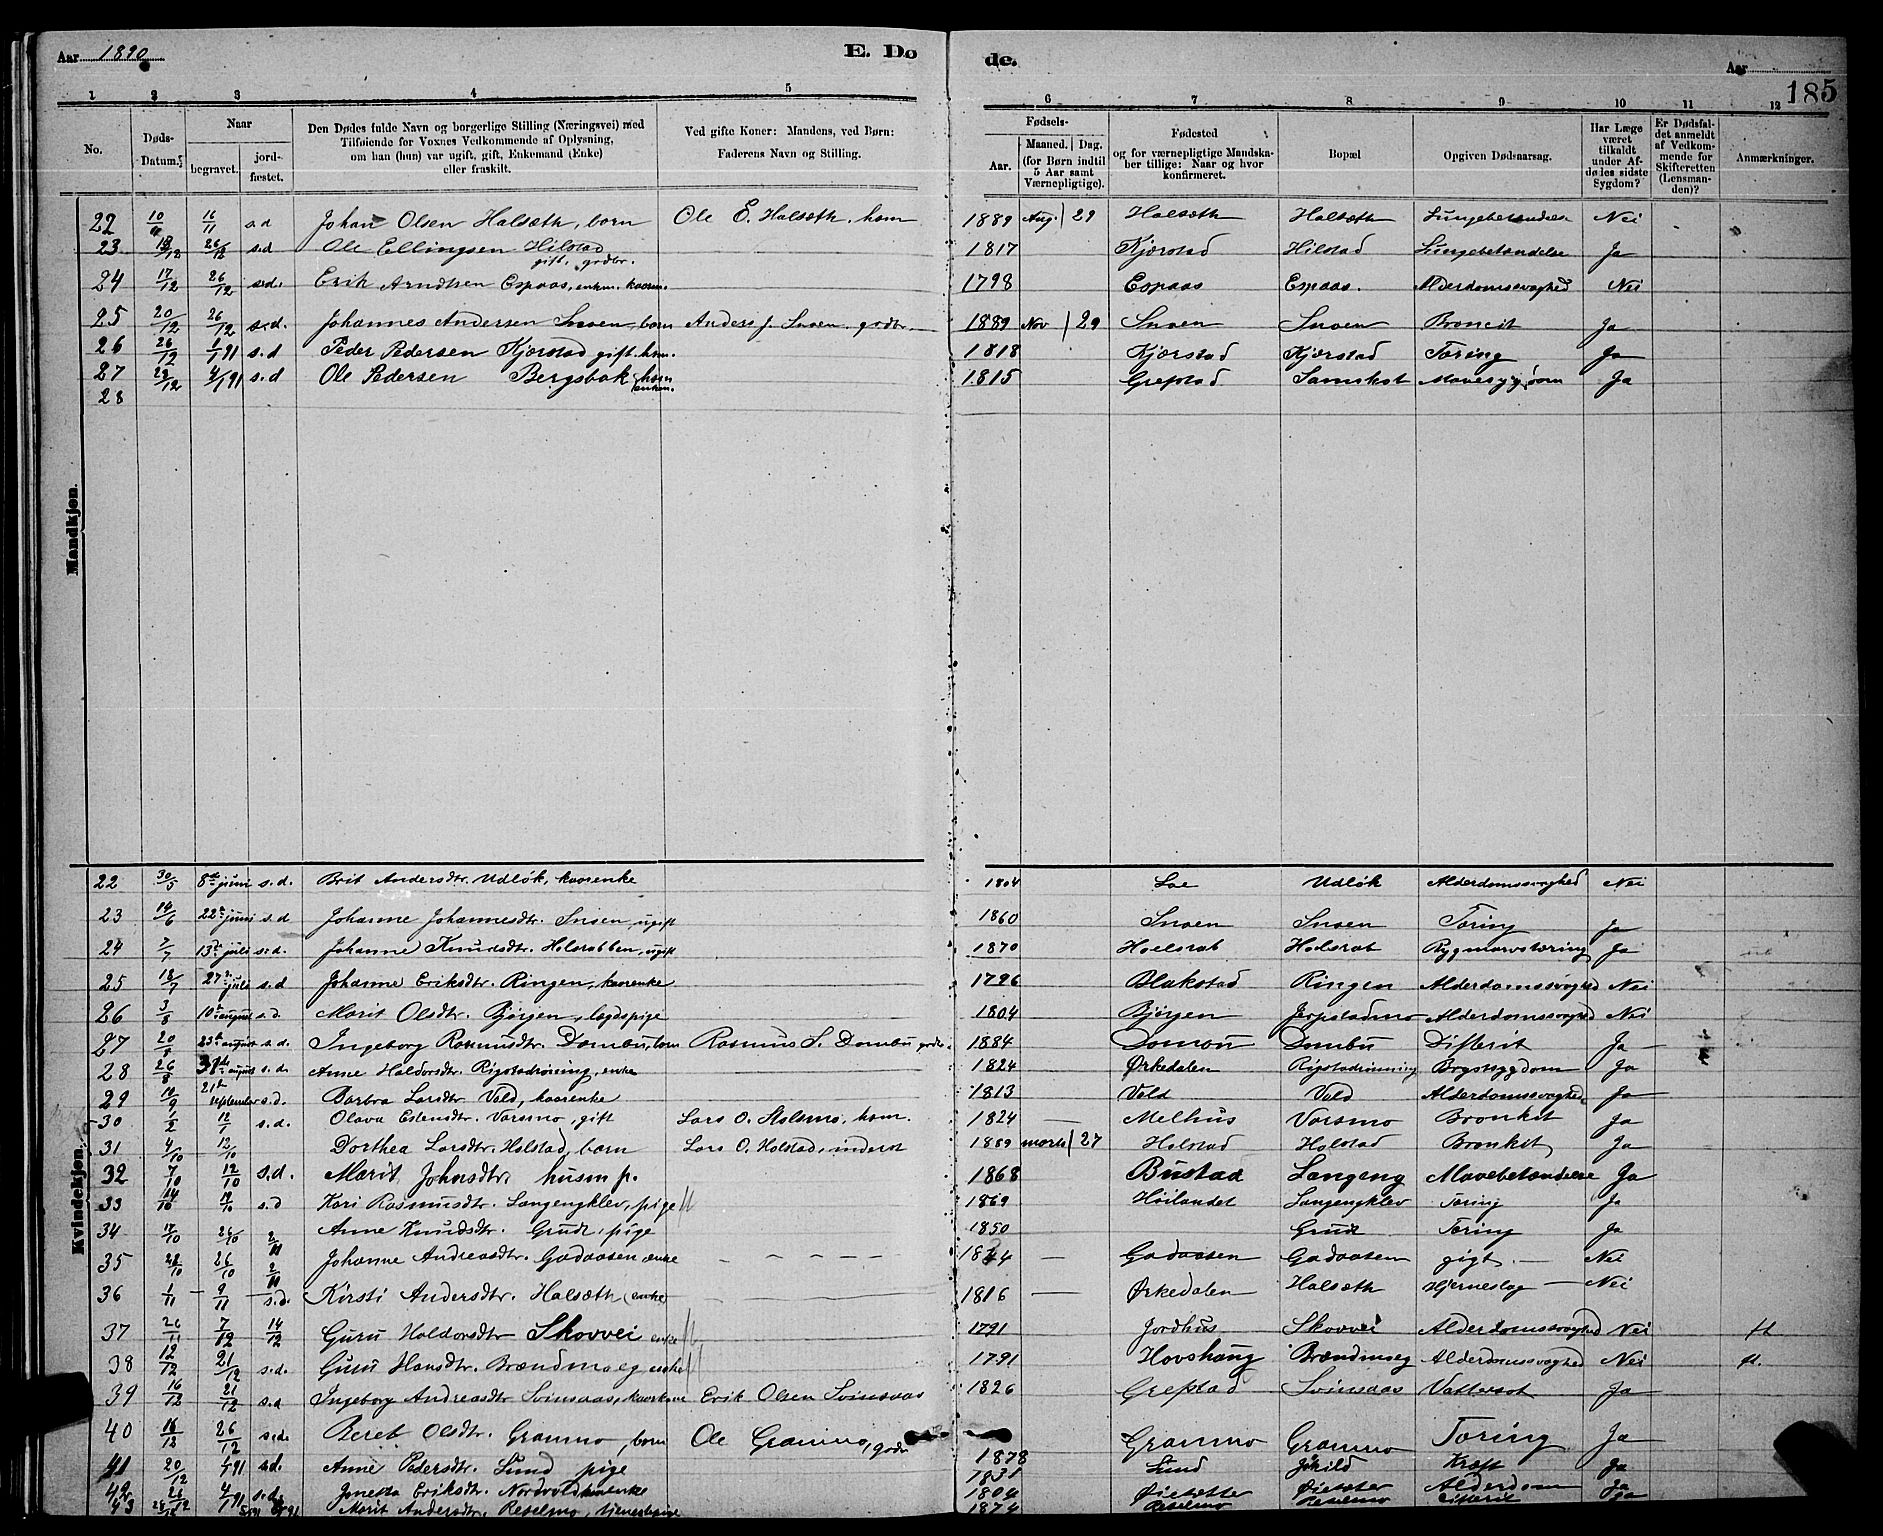 Aar 1890 E. Dø
de. Aar 185
1 2 3 4 5 6 7 8 9 10 11 12
No. Døds-Datum. Naar begravet. jord-fæstet. Den Dødes fulde Navn og borgerlige Stilling (Næringsvei) med Tilføiende for Voxnes Vedkommende af Oplysning, om han (hun) var ugift, gift, Enkemand (Enke) eller fraskilt. Ved gifte Koner: Mandens, ved Børn: Faderens Navn og Stilling. Fødsels- Aar. Maaned. Dag. (for Børn indtil 5 Aar samt Værnepligtige). Fødested og for værnepligtige Mandska-ber tillige: Naar og hvor konfirmeret. Bopæl Opgiven Dødsaarsag. Har Læge været tilkaldt under Af-dødes sidste Sygdom? Er Dødsfal-det anmeldt af Vedkom-mende for Skifteretten (Lensman-den)? Anmærkninger.
Mandkjøn.
22 10/11 16/11 s.d Johan Olsen Halsæth, barn Ole E. Halsæth, hsm 1889 Aug. 29 Halsæth Halsæth Lungebetændelse Nei
23 18/12 26/12 s.d Ole Ellingsen Hilstad gift, grdbr. 1817 Kjørstad Hilstad Lungebetændelse Ja
24 17/12 26/12 s.d. Erik Arndtsen Espaas, enkm. kaarm. 1798 Espaas Espaas. Alderdomssvaghed Nei
25 20/12 26/12 s.d. Johannes Andersen Snoen, barn Anders J. Snoen, grdbr. 1889 Nov 29 Snoen Snoen Broncit Ja
26 26/12 1/1 91 s.d Peder Pedersen Kjørstad gift. hsm. 1818 Kjørstad Kjørstad Tæring Ja
27 29/12 4/1 91 s.d Ole Pedersen Bergsbak hsm enkm. 1815 Grefstad Samskot Mavesygdom Ja
28
Kvindekjøn.
22 30/5 8de juni s.d. Brit Andersdtr. Udløk, kaarenke 1804 Loe Udløk Alderdomssvaghed Nei
23 14/6 22de juni s.d Johanne Johannesdtr. Snoen, ugift 1860 Snoen Snoen Tæring Ja
24 7/7 13de juli s.d. Johanne Knudsdtr. Holsrabben, ugift 1870 Hoelsrab Holsrab Rygmarvstæring Ja
25 18/7 27de juli s.d Johanne Eriksdtr. Ringen, kaarenke 1796 Blakstad Ringen Alderdomssvaghed Nei
26 3/8 10de august s.d. Marit Olsdtr. Bjørgen, lægdspige 1804 Bjørgen Jerpstadmo Alderdomssvaghed Nei
27 20/8 23de august s.d. Ingeborg Rasmusdtr. Dombu, barn Rasmus S. Dombu grdbr. 1884 Dombu Dombu Difterit Ja
28 26/8 31te august s.d. Anne Haldorsdtr. Rigstadrønning, enke 1824 Ørkedalen Rigstadrønning Brystsygdom Ja
29 10/9 21de september s.d. Barbra Larsdtr. Vold, kaarenke 1813 Vold Vold Alderdomssvaghed Ja
30 s.d. Olava Estensdtr. Varsmo, gift Lars O. Holsmo, hsm. 1824 Melhus Varsmo Bronkit Ja
31 4/10 12/10 Dorthea Larsdtr. Holstad, barn Lars O. Holstad, inderst 1889 marts 27 Holstad Holstad Bronkit Ja
32 7/10 12/10 s.d. Marit Johnsdtr. husm p. 1868 Bustad Langeng Mavebetændelse Ja
33 14/10 19/10 s.d Kari Rasmusdtr. Langengklev, pige 1869 Høilandet Langengklev Tæring Ja
34 17/10 26/10 2/11 Anne Knudsdtr. Grud, pige 1850 Grud Tæring Ja
35 22/10 26/10 2/11 Johanne Andreasdtr. Gadaasen enke 1844 Gadaasen Gadaasen gigt. Nei
36 1/11 9/11 s.d. Kirsti Andersdtr. Halsæth (enke) 1816 Ørkedalen Halsæth Hjerneslag Nei
37 26/11 7/12 14/12 Guru Haldorsdtr Skovvei enke 1791 Jordhus Skovvei Alderdomssvaghed Nei ft
38 12/12 21/12 s.d. Guru Hansdtr. Brændmoeg enke 1791 Hovshaug Brændmoeg Alderdomssvaghed Nei ft.
39 16/12 21/12 s.d Ingeborg Andreasdtr Svinsaas, kaarkone Erik Olsen Svinsaas 1826 Grefstad Svinsaas Vattersot Ja
40 16/12 26/12 s.d. Beret Olsdtr. Granmo, barn Ole Granmo, grdbr 1878 Granmo Granmo Tæring Ja
41 20/12 1/1 91 s.d. Anne Pedersdtr. Lund pige 1831 Lund Kræft Ja
42 26/12 4/1 91 s.d. Jonetta Eriksdtr. Nordvold enke 1804 Øietetter Øietetter Alderdom Ja
43 Marit Andersdtr. Reselmo, tjenestepige 1874 Reselmo Reselmo Difterit Ja